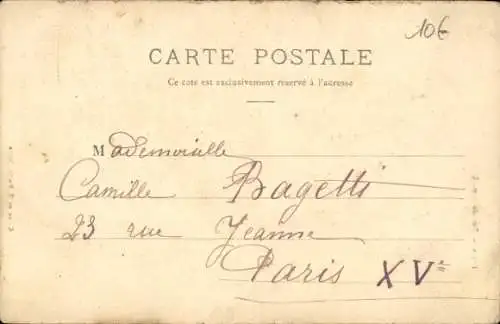 10€
CARTE POSTALE
Ce côté est exclusivement réservé à l'adresse
Mademoiselle
Camille Bagetti
23 rue Jeanne
Paris XVᵉ